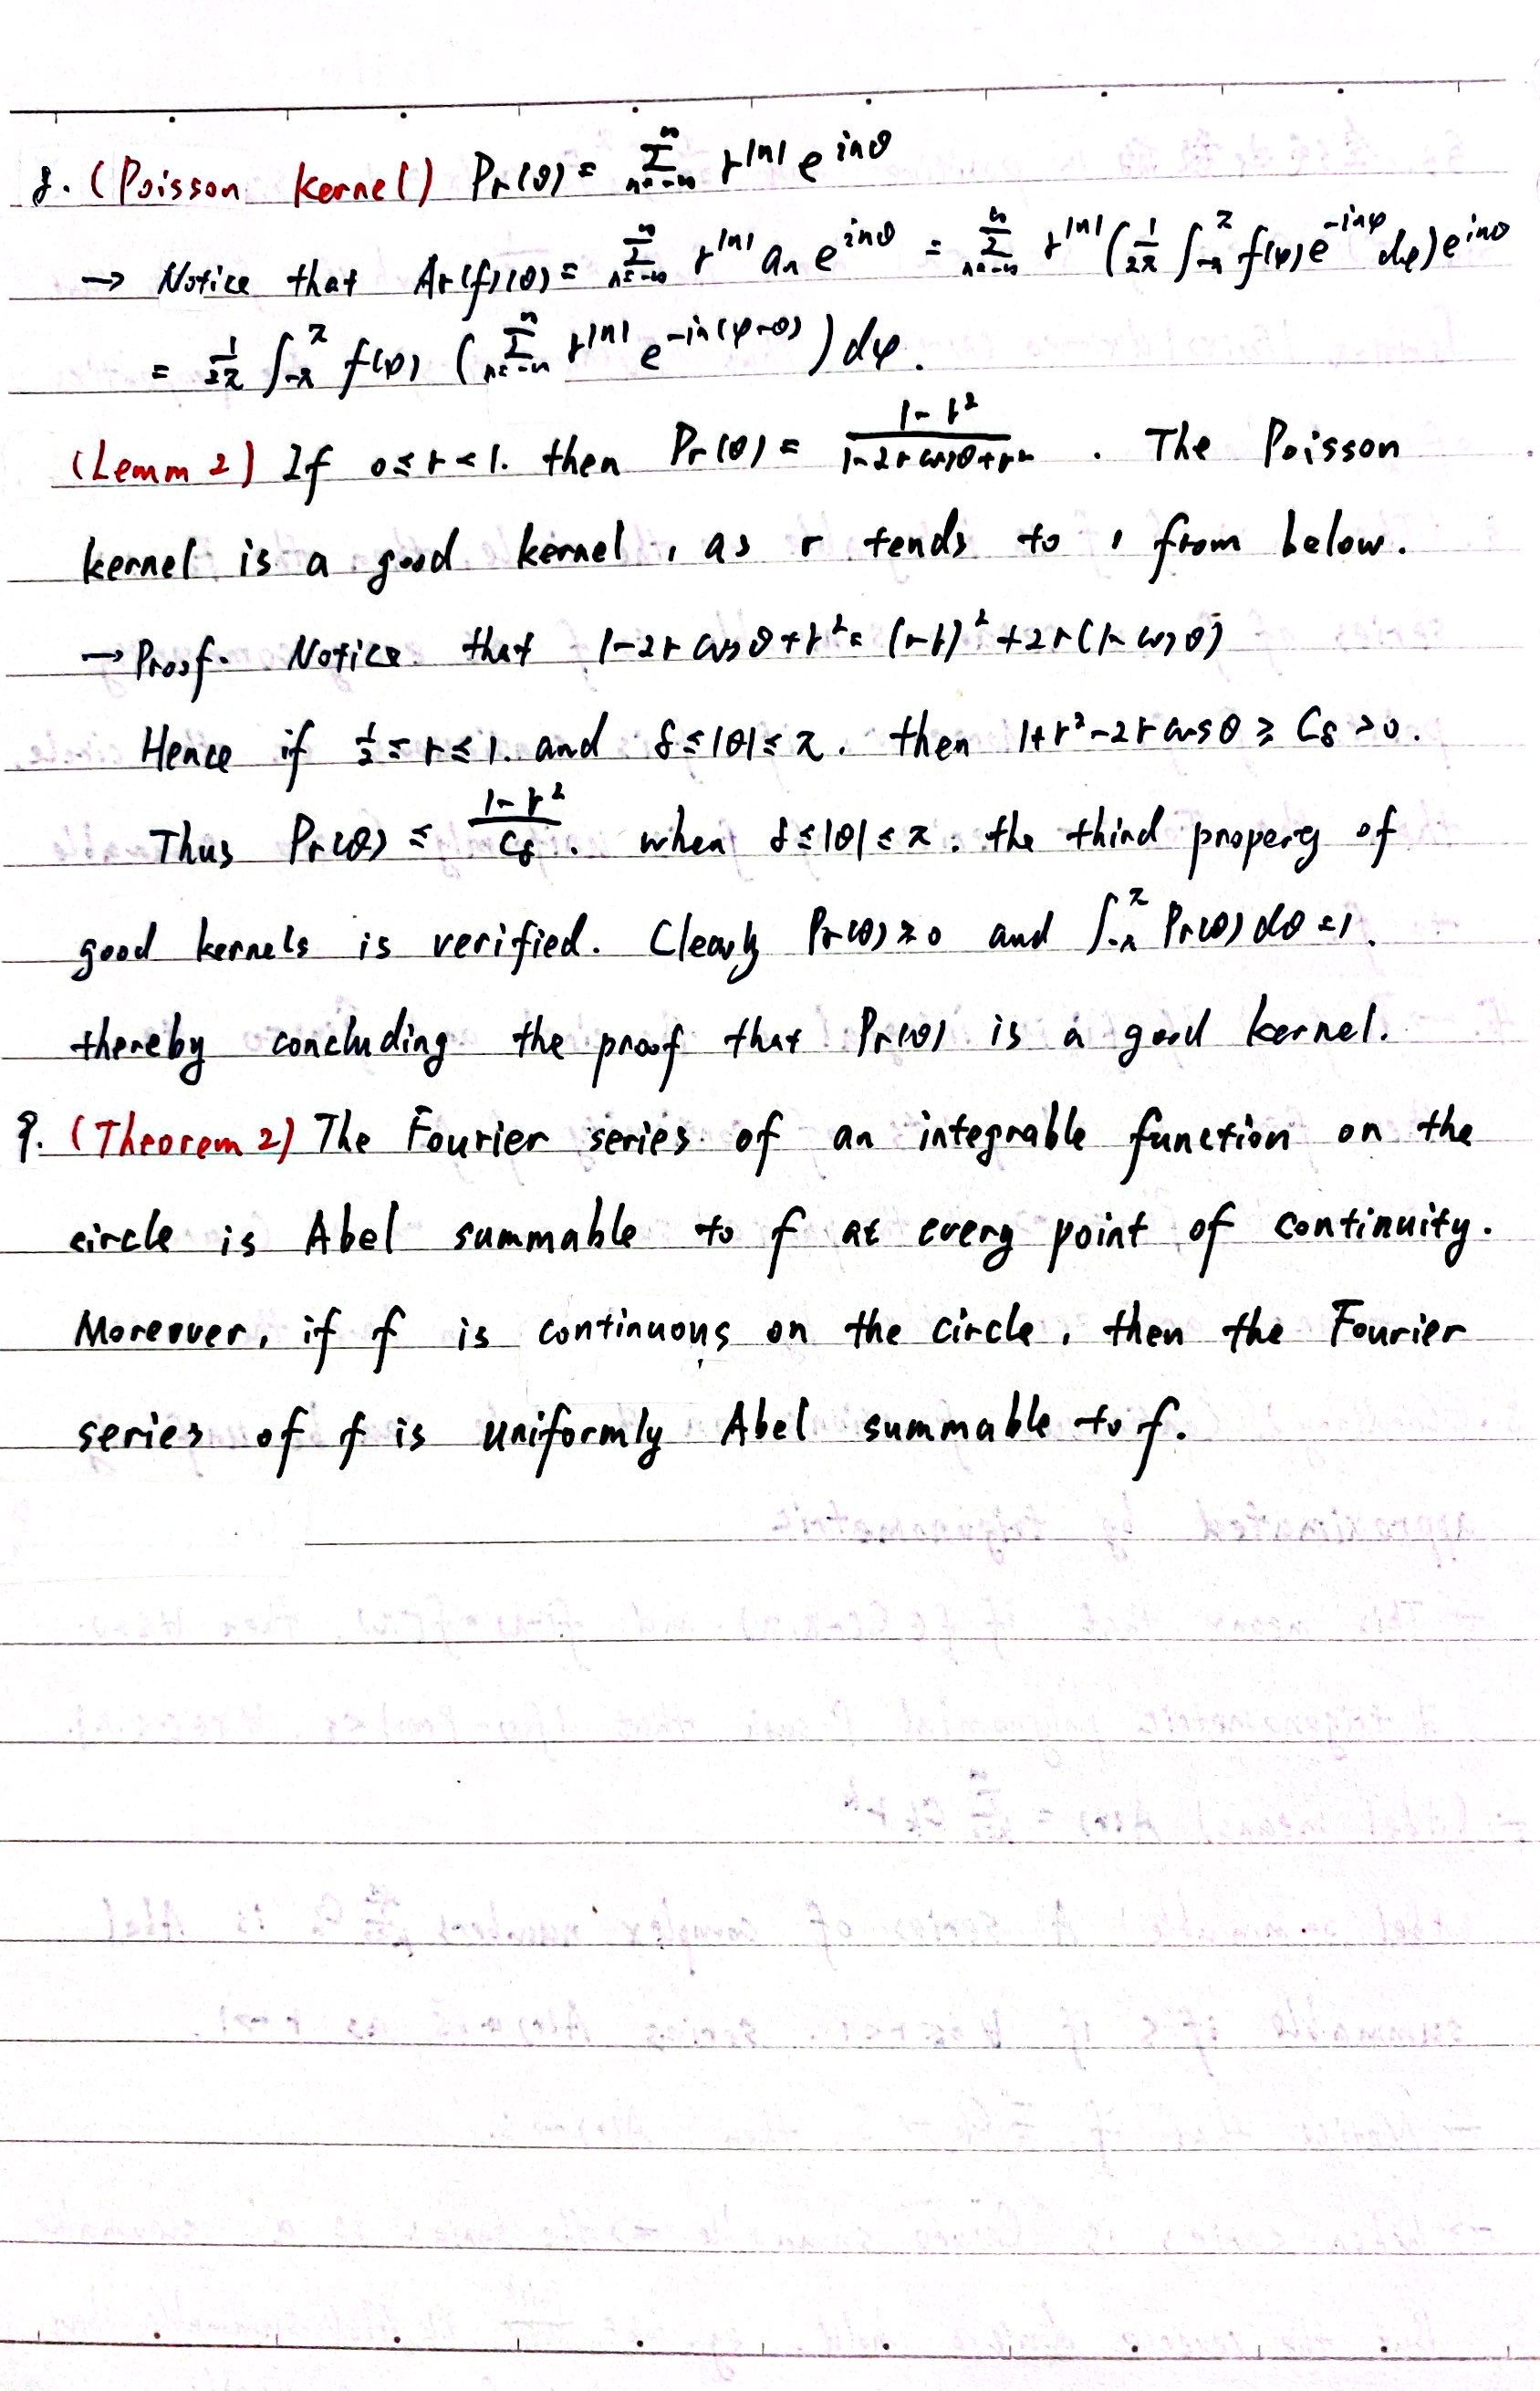 8. (Poisson Kernel) Pr(θ) = ∑_{n=-∞}^{∞} r^{|n|} e^{inθ}
→ Notice that Ar(f)(θ) = ∑_{n=-∞}^{∞} r^{|n|} an e^{inθ} = ∑_{n=-∞}^{∞} r^{|n|} (1/2π ∫_{-π}^{π} f(φ) e^{-inφ} dφ) e^{inθ}
= 1/2π ∫_{-π}^{π} f(φ) (∑_{n=-∞}^{∞} r^{|n|} e^{-in(φ-θ)}) dφ.
(Lemm 2) If 0≤r<1. then Pr(θ) = (1-r²)/(1-2r cosθ+r²). The Poisson
kernel is a good kernel, as r tends to 1 from below.
→ Proof. Notice that 1-2r cosθ+r² = (1-r)² + 2r(1-cosθ)
Hence if 1/2 ≤ r ≤ 1. and δ≤|θ|≤π. then 1+r²-2r cosθ ≥ Cδ > 0.
Thus Pr(θ) ≤ (1-r²)/Cδ. when δ≤|θ|≤π. the third propery of
good kernels is verified. Clearly Pr(θ)≥0 and ∫_{-π}^{π} Pr(θ) dθ = 1.
thereby concluding the proof that Pr(θ) is a good kernel.
9. (Theorem 2) The Fourier series of an integrable function on the
circle is Abel summable to f at every point of continuity.
Moreover, if f is continuous on the circle, then the Fourier
series of f is uniformly Abel summable to f.